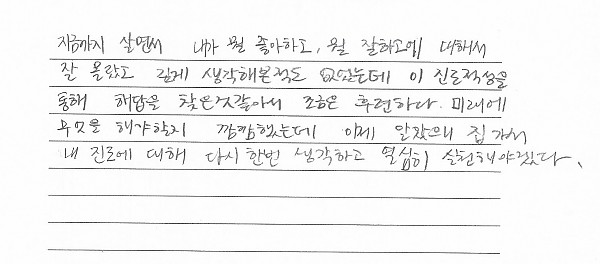 지금까지 살면서 내가 뭘 좋아하고, 뭘 잘하고에 대해서
잘 몰랐고 깊게 생각해본적도 없었는데 이 진로적성을
통해 해답을 찾은것같아서 조금은 후련하다. 미래에
무엇을 해야할지 깜깜했는데 이제 알았으니 집 가서
내 진로에 대해 다시 한번 생각하고 열심히 실천해야겠다.